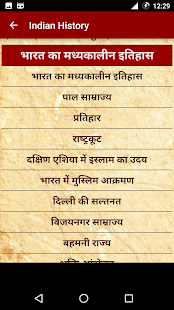 12:29
Indian History
भारत का मध्यकालीन इतिहास
भारत का मध्यकालीन इतिहास
पाल साम्राज्य
प्रतिहार
राष्ट्रकूट
दक्षिण एशिया में इस्लाम का उदय
भारत में मुस्लिम आक्रमण
दिल्ली की सल्तनत
विजयनगर साम्राज्य
बहमनी राज्य
भक्ति आंदोलन